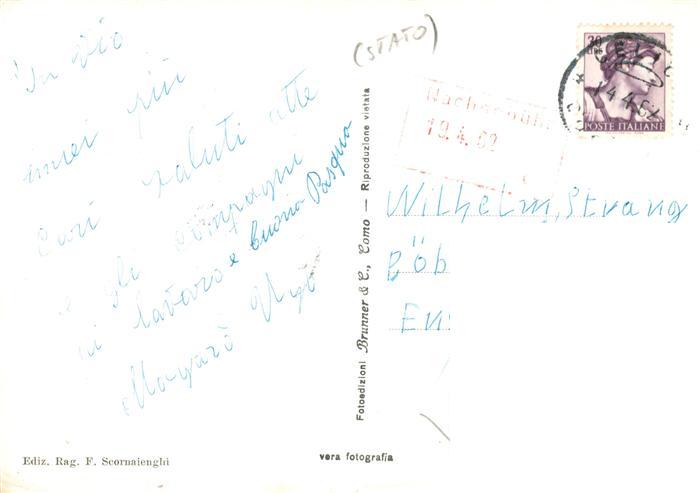 In Vio
miei più
cari saluti atte
e gli compagni
di lavoro e buona Pasqua
Ediz. Rag. F. Scornaienghi
vera fotografia
Fotoedizioni Brunner & C., Como — Riproduzione vietata
(STATO)
19.4.62
30
LIRE
POSTE ITALIANE
Wilhelm, Strang
Böb
En